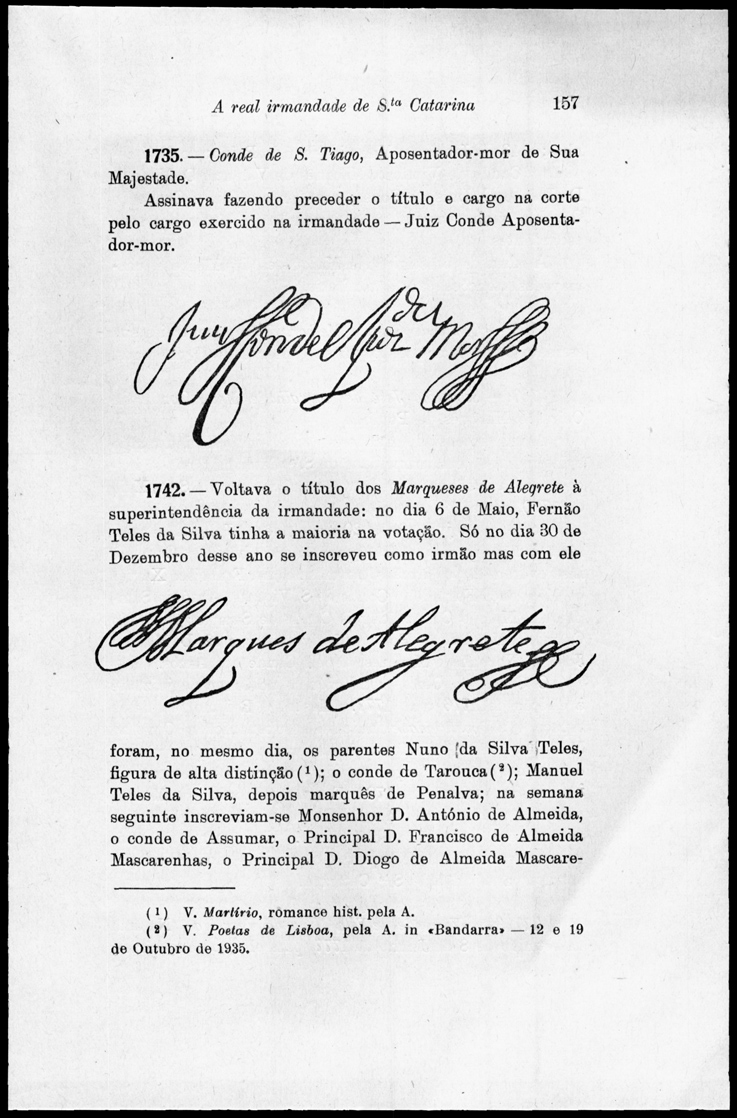 A real irmandade de S.ta Catarina 157
1735. — Conde de S. Tiago, Aposentador-mor de Sua
Majestade.
Assinava fazendo preceder o título e cargo na corte
pelo cargo exercido na irmandade — Juiz Conde Aposenta-
dor-mor.
1742. — Voltava o título dos Marqueses de Alegrete à
superintendência da irmandade: no dia 6 de Maio, Fernão
Teles da Silva tinha a maioria na votação. Só no dia 30 de
Dezembro desse ano se inscreveu como irmão mas com ele
Marques de Alegrete
foram, no mesmo dia, os parentes Nuno da Silva Teles,
figura de alta distinção (1); o conde de Tarouca (2); Manuel
Teles da Silva, depois marquês de Penalva; na semana
seguinte inscreviam-se Monsenhor D. António de Almeida,
o conde de Assumar, o Principal D. Francisco de Almeida
Mascarenhas, o Principal D. Diogo de Almeida Mascare-
(1) V. Martírio, romance hist. pela A.
(2) V. Poetas de Lisboa, pela A. in «Bandarra» — 12 e 19
de Outubro de 1935.